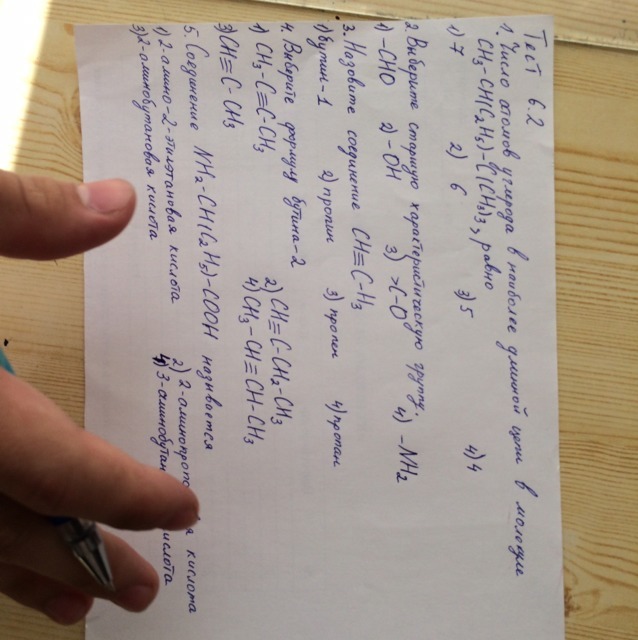 Тест 6.2
1. Число атомов углерода в наиболее длинной цепи в молекуле
CH3-CH(C2H5)-C(CH3)3, равно
1) 7 2) 6 3) 5 4) 4
2. Выберите старшую характеристическую группу.
1) -CHO 2) -OH 3) >C-O 4) -NH2
3. Назовите соединение CH≡C-H3
1) бутин-1 2) пропин 3) пропен 4) пропан
4. Выберите формулу бутина-2
1) CH3-C≡C-CH3 2) CH≡C-CH2-CH3
3) CH≡C-CH3 4) CH3-CH≡CH-CH3
5. Соединение NH2-CH(C2H5)-COOH называется
1) 2-амино-2-этилэтановая кислота 2) 2-аминопропо кислота
3) 2-аминобутановая кислота 4) 3-аминобутан кислота